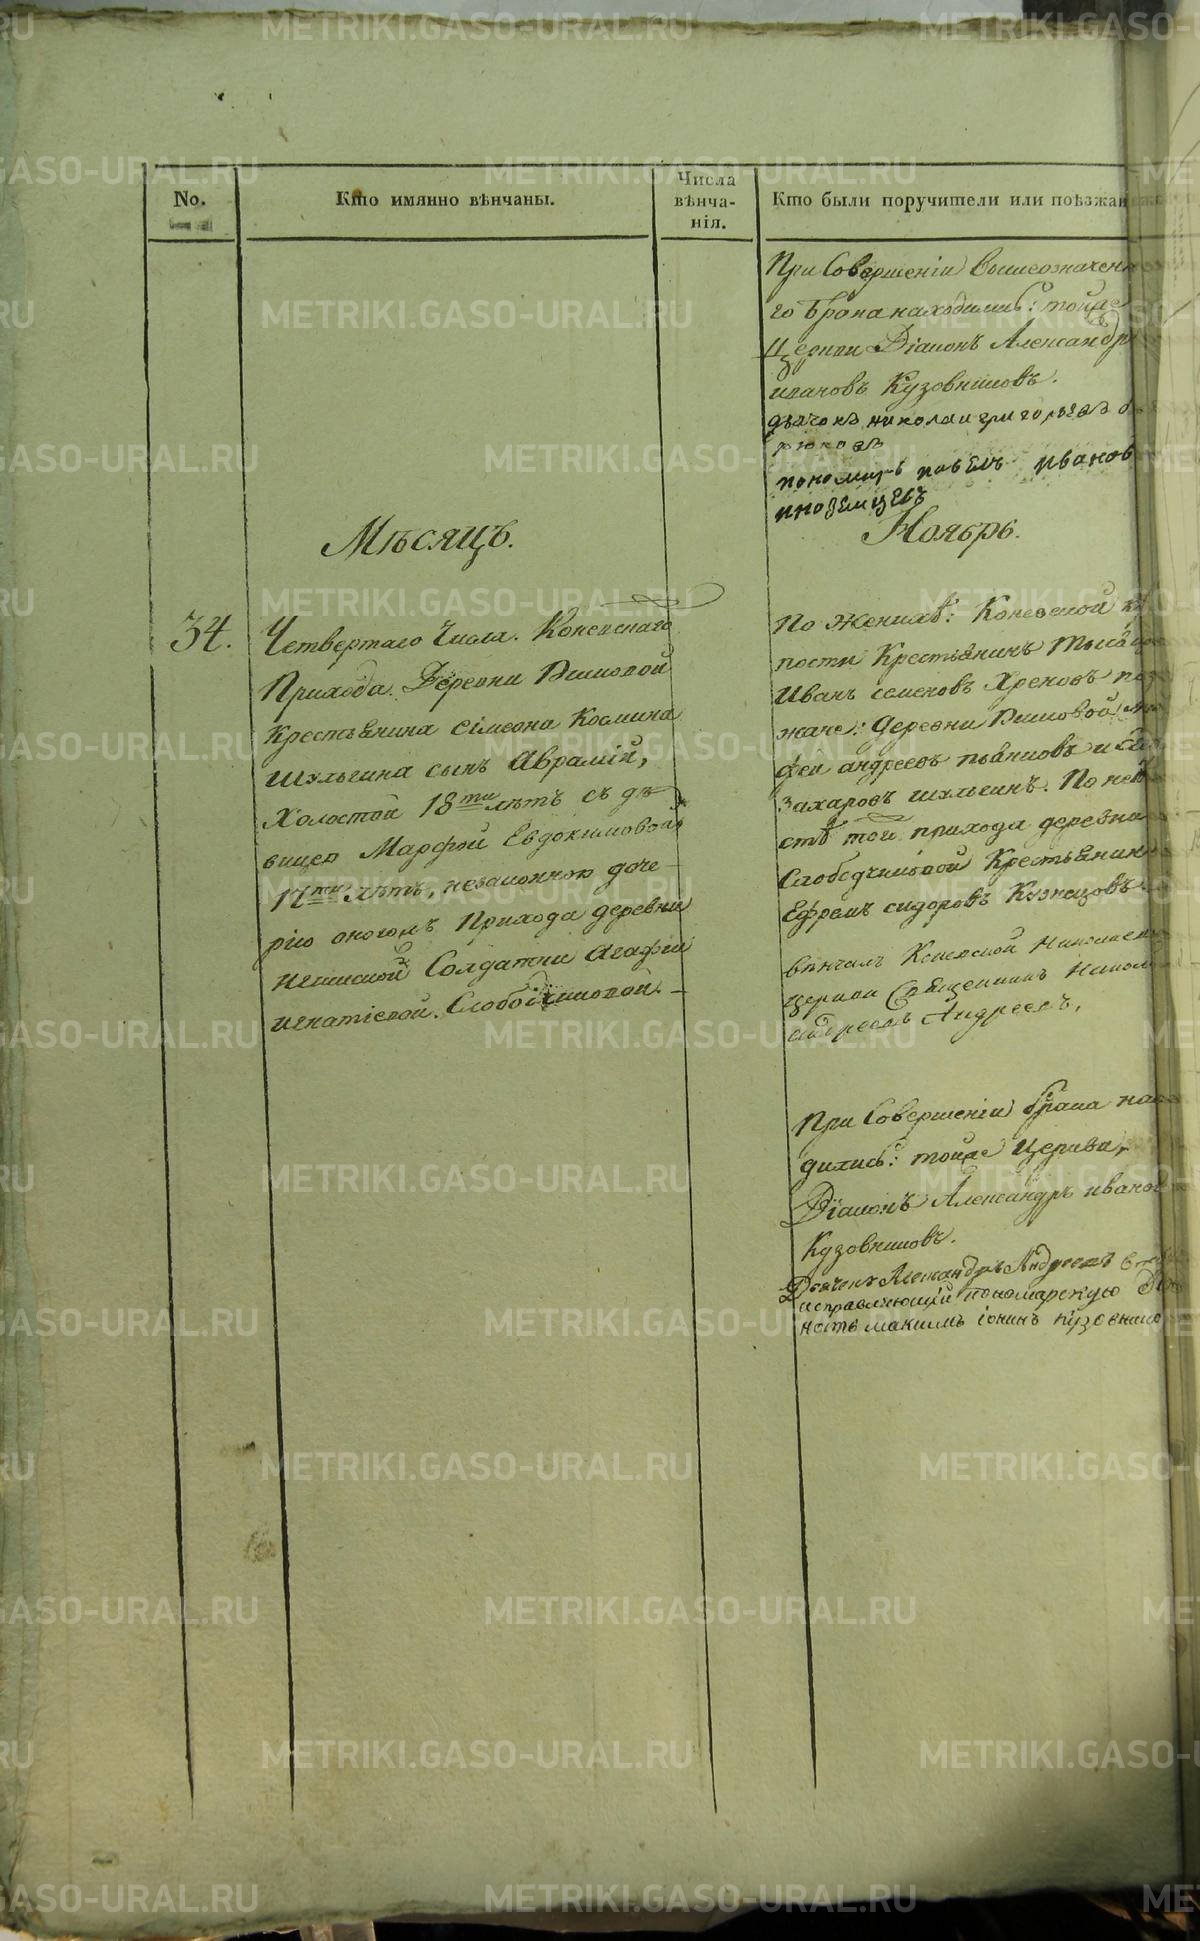 No.
Кто имянно вѣнчаны.
Числа
вѣнча-
нія.
Кто были поручители или поѣзжан
При Совершеніи вышеозначен
го брака находились: тойже
Церкви Діаконъ Александръ
ивановъ Кузовниковъ.
дьячокъ николаи григорьевъ
рюковъ
пономарь павелъ иванов
иноземцевъ
Мѣсяцъ.
Ноябрь.
34.
Четвертаго Числа. Коневскаго
Прихода. Деревни
Крестьянина Сімеона Космина
шульгина сынъ Аврамій,
Холостой 18ти лѣтъ съ дѣ
вицею Марфой Евдокимовой
17ти лѣтъ, незаконною доче-
рію оногожъ Прихода деревни
Солдатки Агафіи
игнатіевой. Слободчиковой.
По женихѣ: Коневской
пости Крестьянинъ
Иванъ семеновъ Хреновъ
жане: Деревни
фей андреевъ пьянковъ и
Захаровъ шульгинъ. По невѣ
стѣ той прихода деревни
Слободчиковой Крестьянин
Ефремъ сидоровъ Кузнецовъ.
вѣнчалъ Коневской
церкви Священникъ
андреевъ Андреевъ.
При Совершеніи брака нах
дились: тойже Церкви,
Діаконъ Александръ иванов
Кузовниковъ.
Дьячекъ Александръ Андреевъ
исправляющій пономарскую
ность максимъ іонинъ кузовнико
METRIKI.GASO-URAL.RU